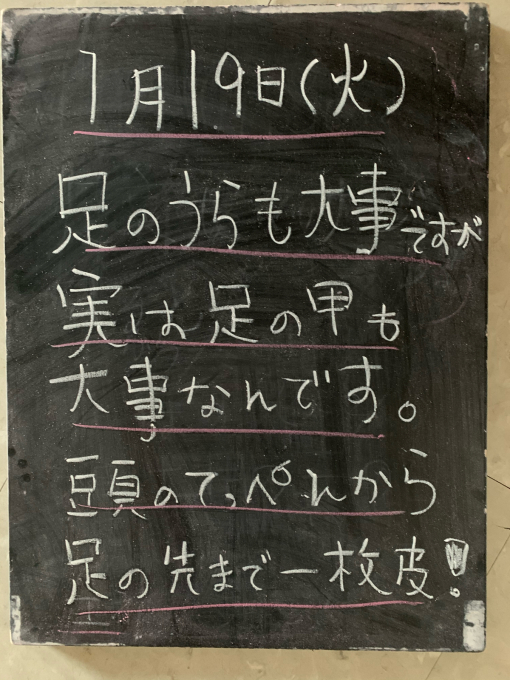 1月19日(火)
足のうらも大事ですが
実は足の甲も
大事なんです。
頭のてっぺんから
足の先まで一枚皮!